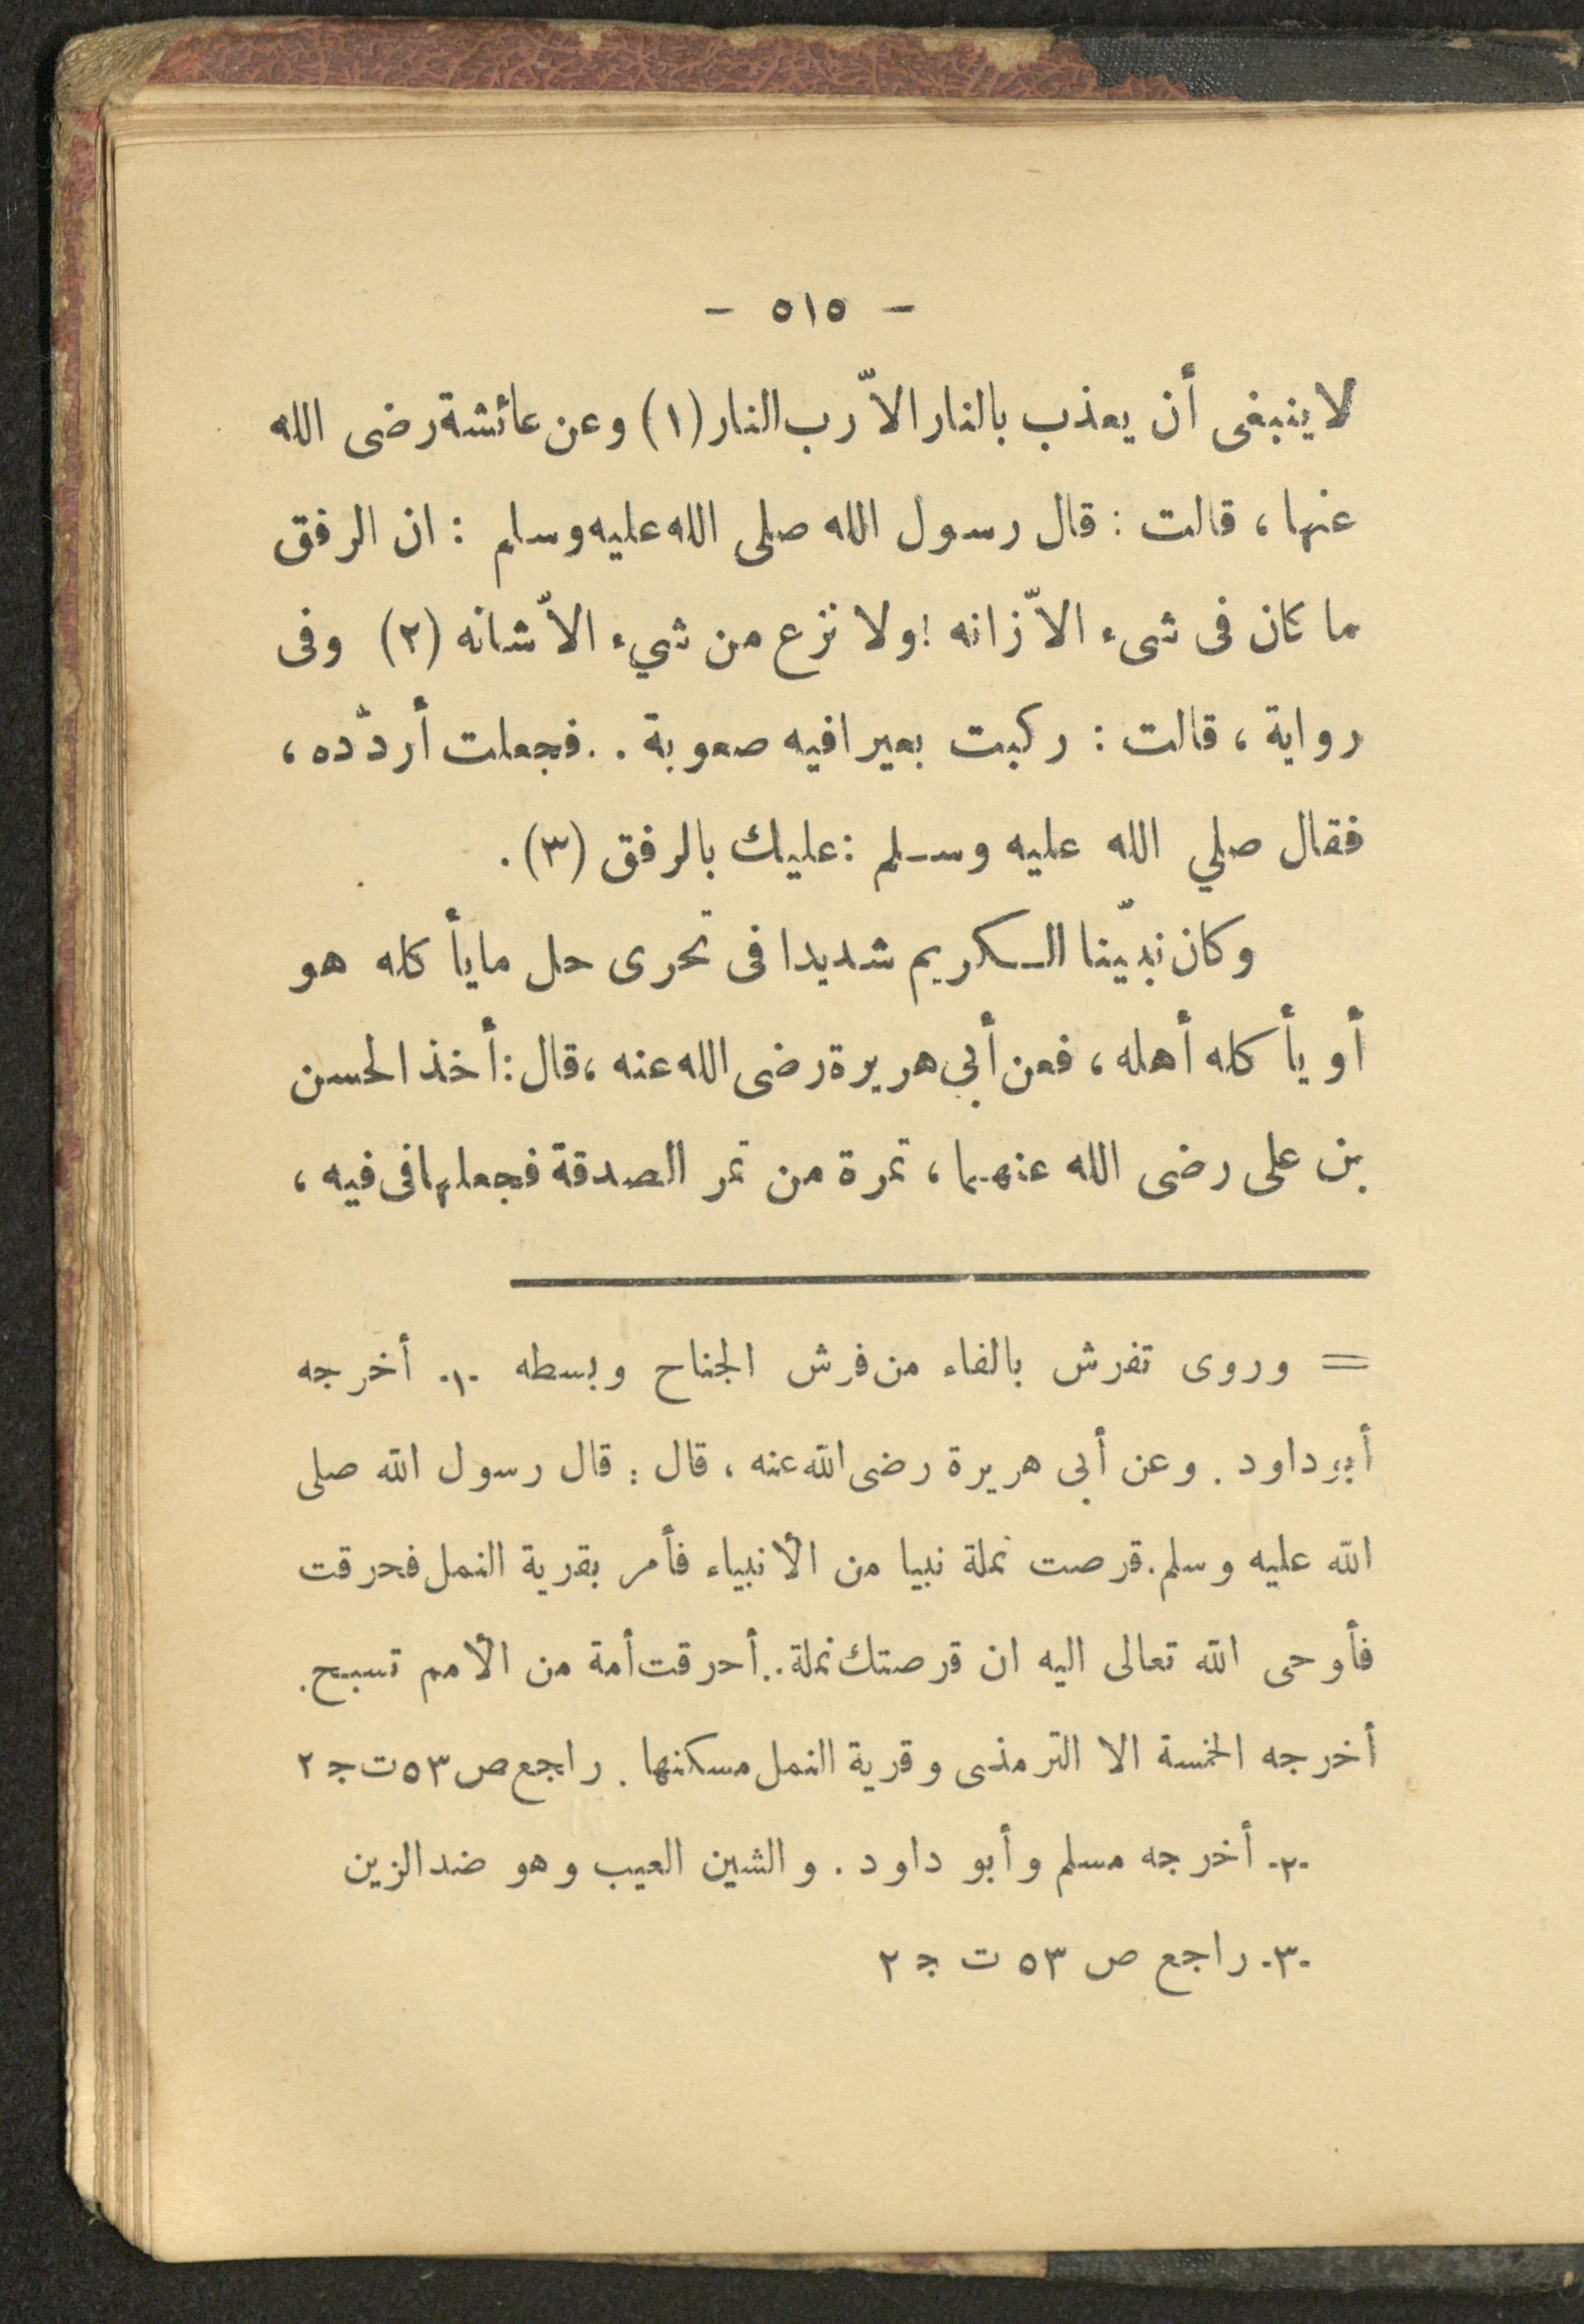 - ٥١٥ -
لا ينبغى أن يعذب بالنار الاّ رب النار (١) وعن عائشة رضى الله
عنها ، قالت : قال رسول الله صلى الله عليه وسلم : ان الرفق
ما كان فى شىء الاّ زانه ! ولا نزع من شيء الاّ شانه (٢) وفى
رواية ، قالت : ركبت بعيرا فيه صعوبة . . فجعلت أردّده ،
فقال صلي الله عليه وسلم : عليك بالرفق (٣) .
وكان نبيّنا الكريم شديدا فى تحرى حل ما يأكله هو
أو يأكله أهله ، فعن أبي هريرة رضى الله عنه ، قال : أخذ الحسن
بن على رضى الله عنهما ، تمرة من تمر الصدقة فجعلها فى فيه ،
= وروى تفرش بالفاء من فرش الجناح وبسطه -١- أخرجه
أبو داود . وعن أبى هريرة رضى الله عنه ، قال : قال رسول الله صلى
الله عليه وسلم . قرصت نملة نبيا من الأنبياء فأمر بقرية النمل فحرقت
فأوحى الله تعالى اليه ان قرصتك نملة . . أحرقت أمة من الأمم تسبح .
أخرجه الخمسة الا الترمذى وقرية النمل مسكنها . راجع ص ٥٣ ت ج ٢
-٢- أخرجه مسلم وأبو داود . والشين العيب وهو ضد الزين
-٣- راجع ص ٥٣ ت ج ٢